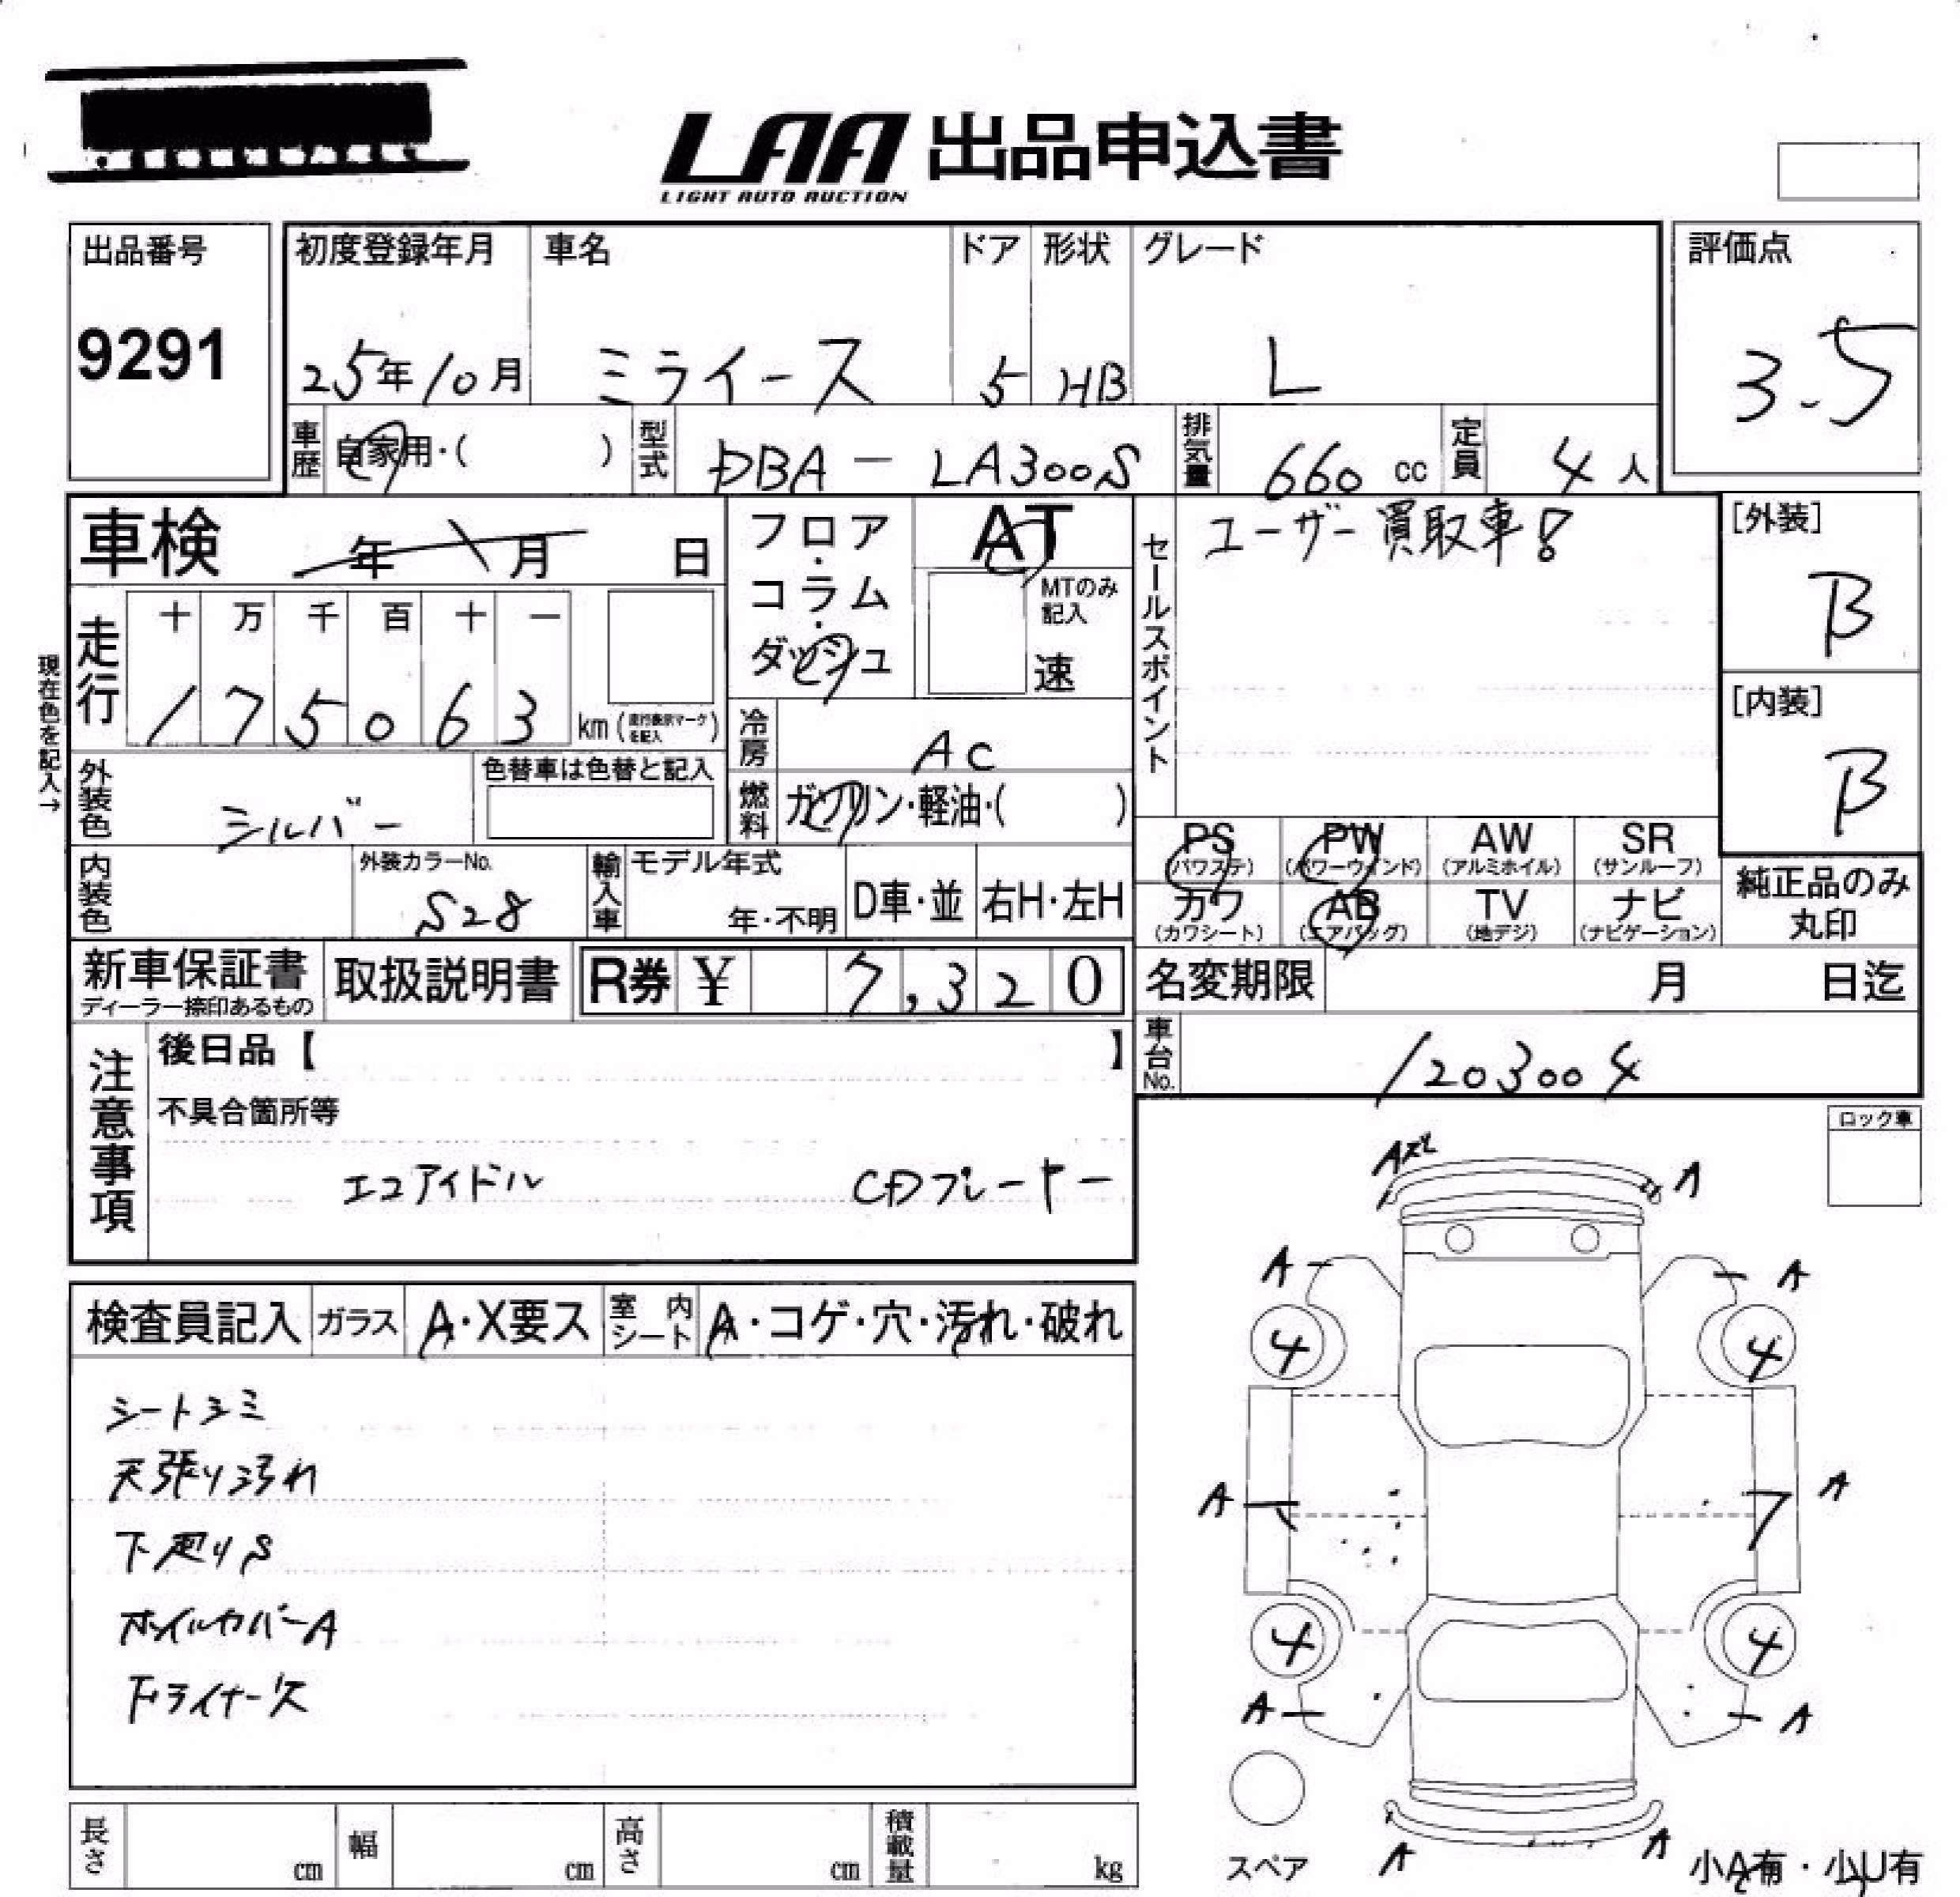 LAA 出品申込書
LIGHT AUTO AUCTION
出品番号
9291
初度登録年月
25年10月
車名
ミライース
ドア
5
形状
HB
グレード
L
評価点
3.5
車歴
自家用・( )
型式
DBA - LA300S
排気量
660 cc
定員
4人
車検
年 月 日
フロア・コラム・ダッシュ
AT
MTのみ記入
速
セールスポイント
ユーザー買取車!
[外装]
B
[内装]
B
現在色を記入→
走行
十 万 千 百 十 一
1 7 5 0 6 3 km (走行表示マークを記入)
冷房
AC
燃料
ガソリン・軽油・( )
外装色
シルバー
色替車は色替と記入
内装色
外装カラーNo.
S28
輸入車
モデル年式
年・不明
D車・並
右H・左H
PS (パワステ)
PW (パワーウインド)
AW (アルミホイル)
SR (サンルーフ)
カワ (カワシート)
AB (エアバッグ)
TV (地デジ)
ナビ (ナビゲーション)
純正品のみ丸印
新車保証書
ディーラー捺印あるもの
取扱説明書
R券 ¥ 7,320
名変期限
月 日迄
車台No.
1203004
注意事項
後日品【 】
不具合箇所等
エコアイドル CDプレーヤー
ロック車
検査員記入
ガラス
A・X要ス
室内シート
A・コゲ・穴・汚れ・破れ
シートシミ
天張り汚れ
下廻りS
ホイルカバーA
下ライナー欠
A A
A A
4 4
A A
4 4
A A
スペア
A A
小A有・小U有
長さ cm
幅 cm
高さ cm
積載量 kg